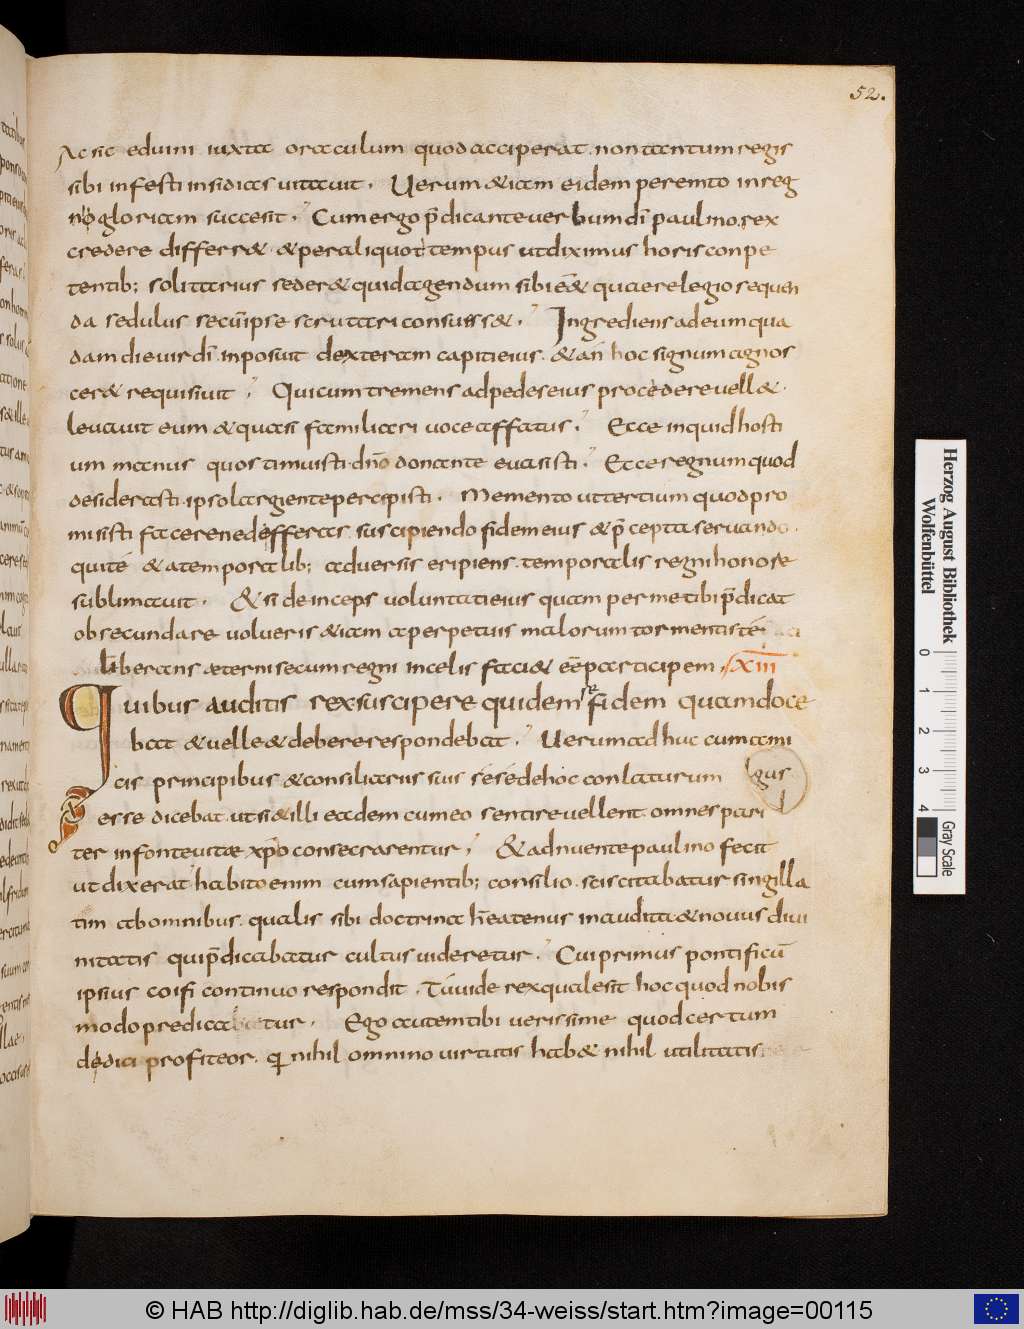 52.
Ac sic eduini iuxta oraculum quod acciperat. non tantum regis
sibi infesti insidias uitauit. Uerum & iam eidem peremto in reg
ni gloriam succesit. Cum ergo p̄dicante uerbum dī paulino. rex
credere differr& & per aliquot tempus ut diximus horis conpe
tentib; solitarius seder& quid agendum sibi ē& quae relegio sequen
da sedulus secū ipse scrutari consuess&. Ingrediens ad eum qua
dam die uir dī inposuit dexteram capiti eius. & an hoc signum agnos
cer& requisiuit. Qui cum tremens ad pedes eius procedere uell&.
leuauit eum & quasi familiari uoce affatus. Ecce inquid hosti
um manus quos timuisti dn̄o donante euasisti. Ecce regnum quod
desiderasti. ipso largiente percepisti. Memento ut tertium quod pro
misisti facere ne defferas. suscipiendo fidem eius & p̄cepta seruando.
qui té & a temporalib; aduersis eripiens. temporalis regni honore
sublimauit. & si deinceps uoluntati eius quam per me tibi p̄dicat
obsecundare uolueris & iam a perpetuis malorum tormentis té
liberans aeterni secum regni in celis faci& eē participem. XIII
Quibus auditis rex suscipere quidem se fidem quam doce
bat & uelle & debere respondebat. Uerum adhuc cum ami
cis principibus & consiliariis suis sésé de hoc conlaturum
esse dicebat. ut si & illi eadem cum eo sentire uellent. omnes pari
ter in fonte uitae xp̄o consecrarentur. & adnuente paulino fecit
ut dixerat habito enim cum sapientib; consilio. sciscitabatur singilla
tim ab omnibus. qualis sibi doctrina h̄eatenus inaudita & nouus diui
nitatis qui p̄dicabatur cultus uideretur. Cui primus pontificū
ipsius coifi continuo respondit. Tu uide rex quale sit hoc quod nobis
modo predicatur. Ego autem tibi uerissime quod certum
dedici profiteor. qi nihil omnino uirtutis hab& nihil utilitatis
Herzog August Bibliothek
Wolfenbüttel
0 1 2 3 4
Gray Scale
© HAB http://diglib.hab.de/mss/34-weiss/start.htm?image=00115